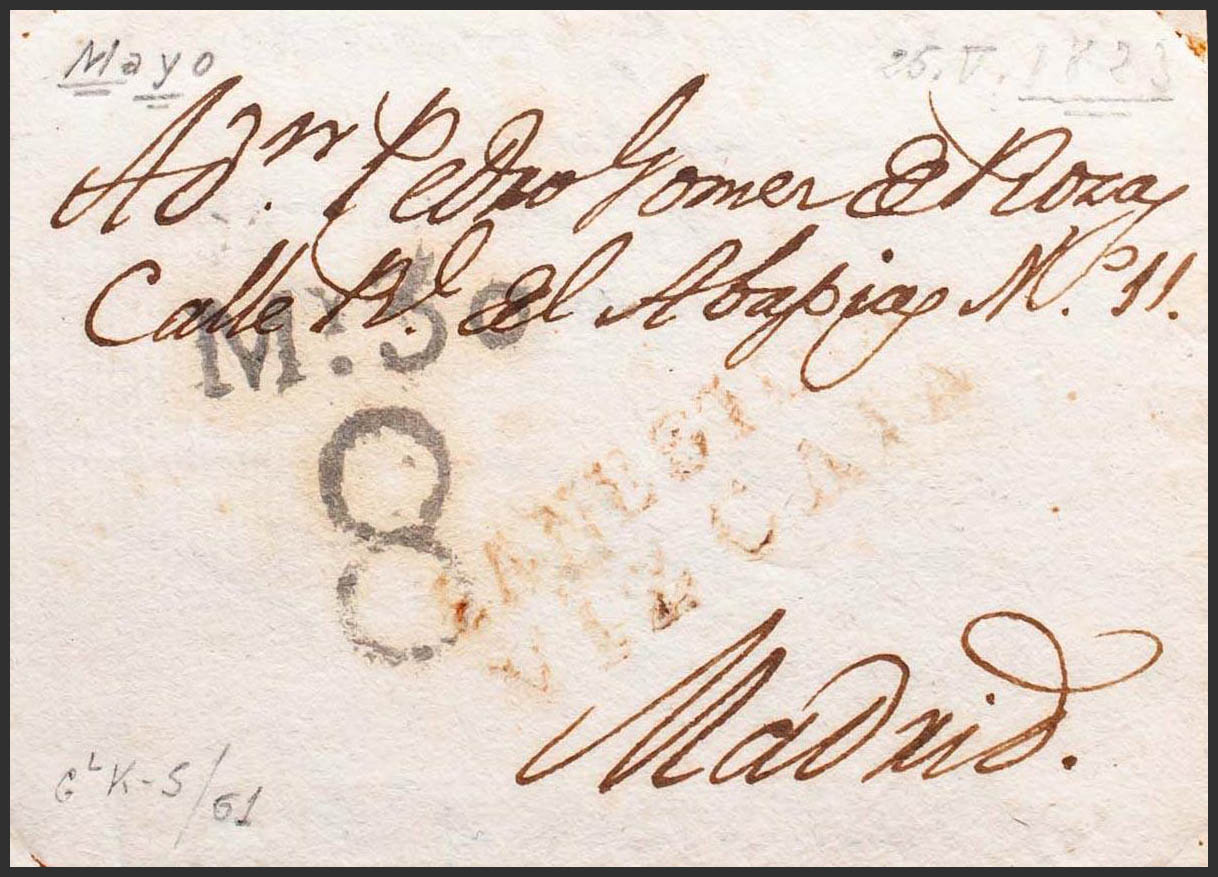 Mayo
25.V.1823
A Dn. Pedro Gomez de Rozas
Calle Rl. del Abapias No. 11.
Mo. 30
8
VIZCAIA
Madrid.
GL K-S/61